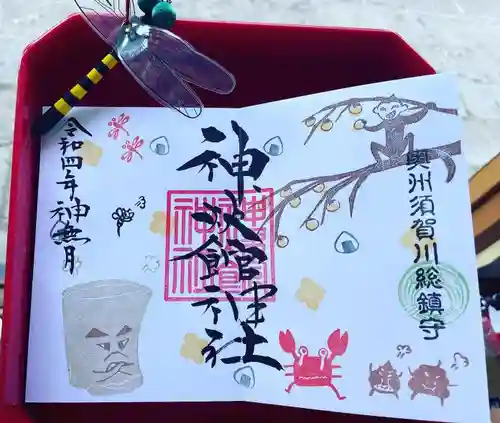 奥州須賀川総鎮守
神炊館神社
令和四年 神無月